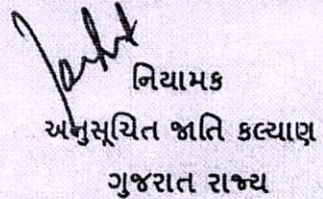 નિયામક
અનુસૂચિત જાતિ કલ્યાણ
ગુજરાત રાજ્ય